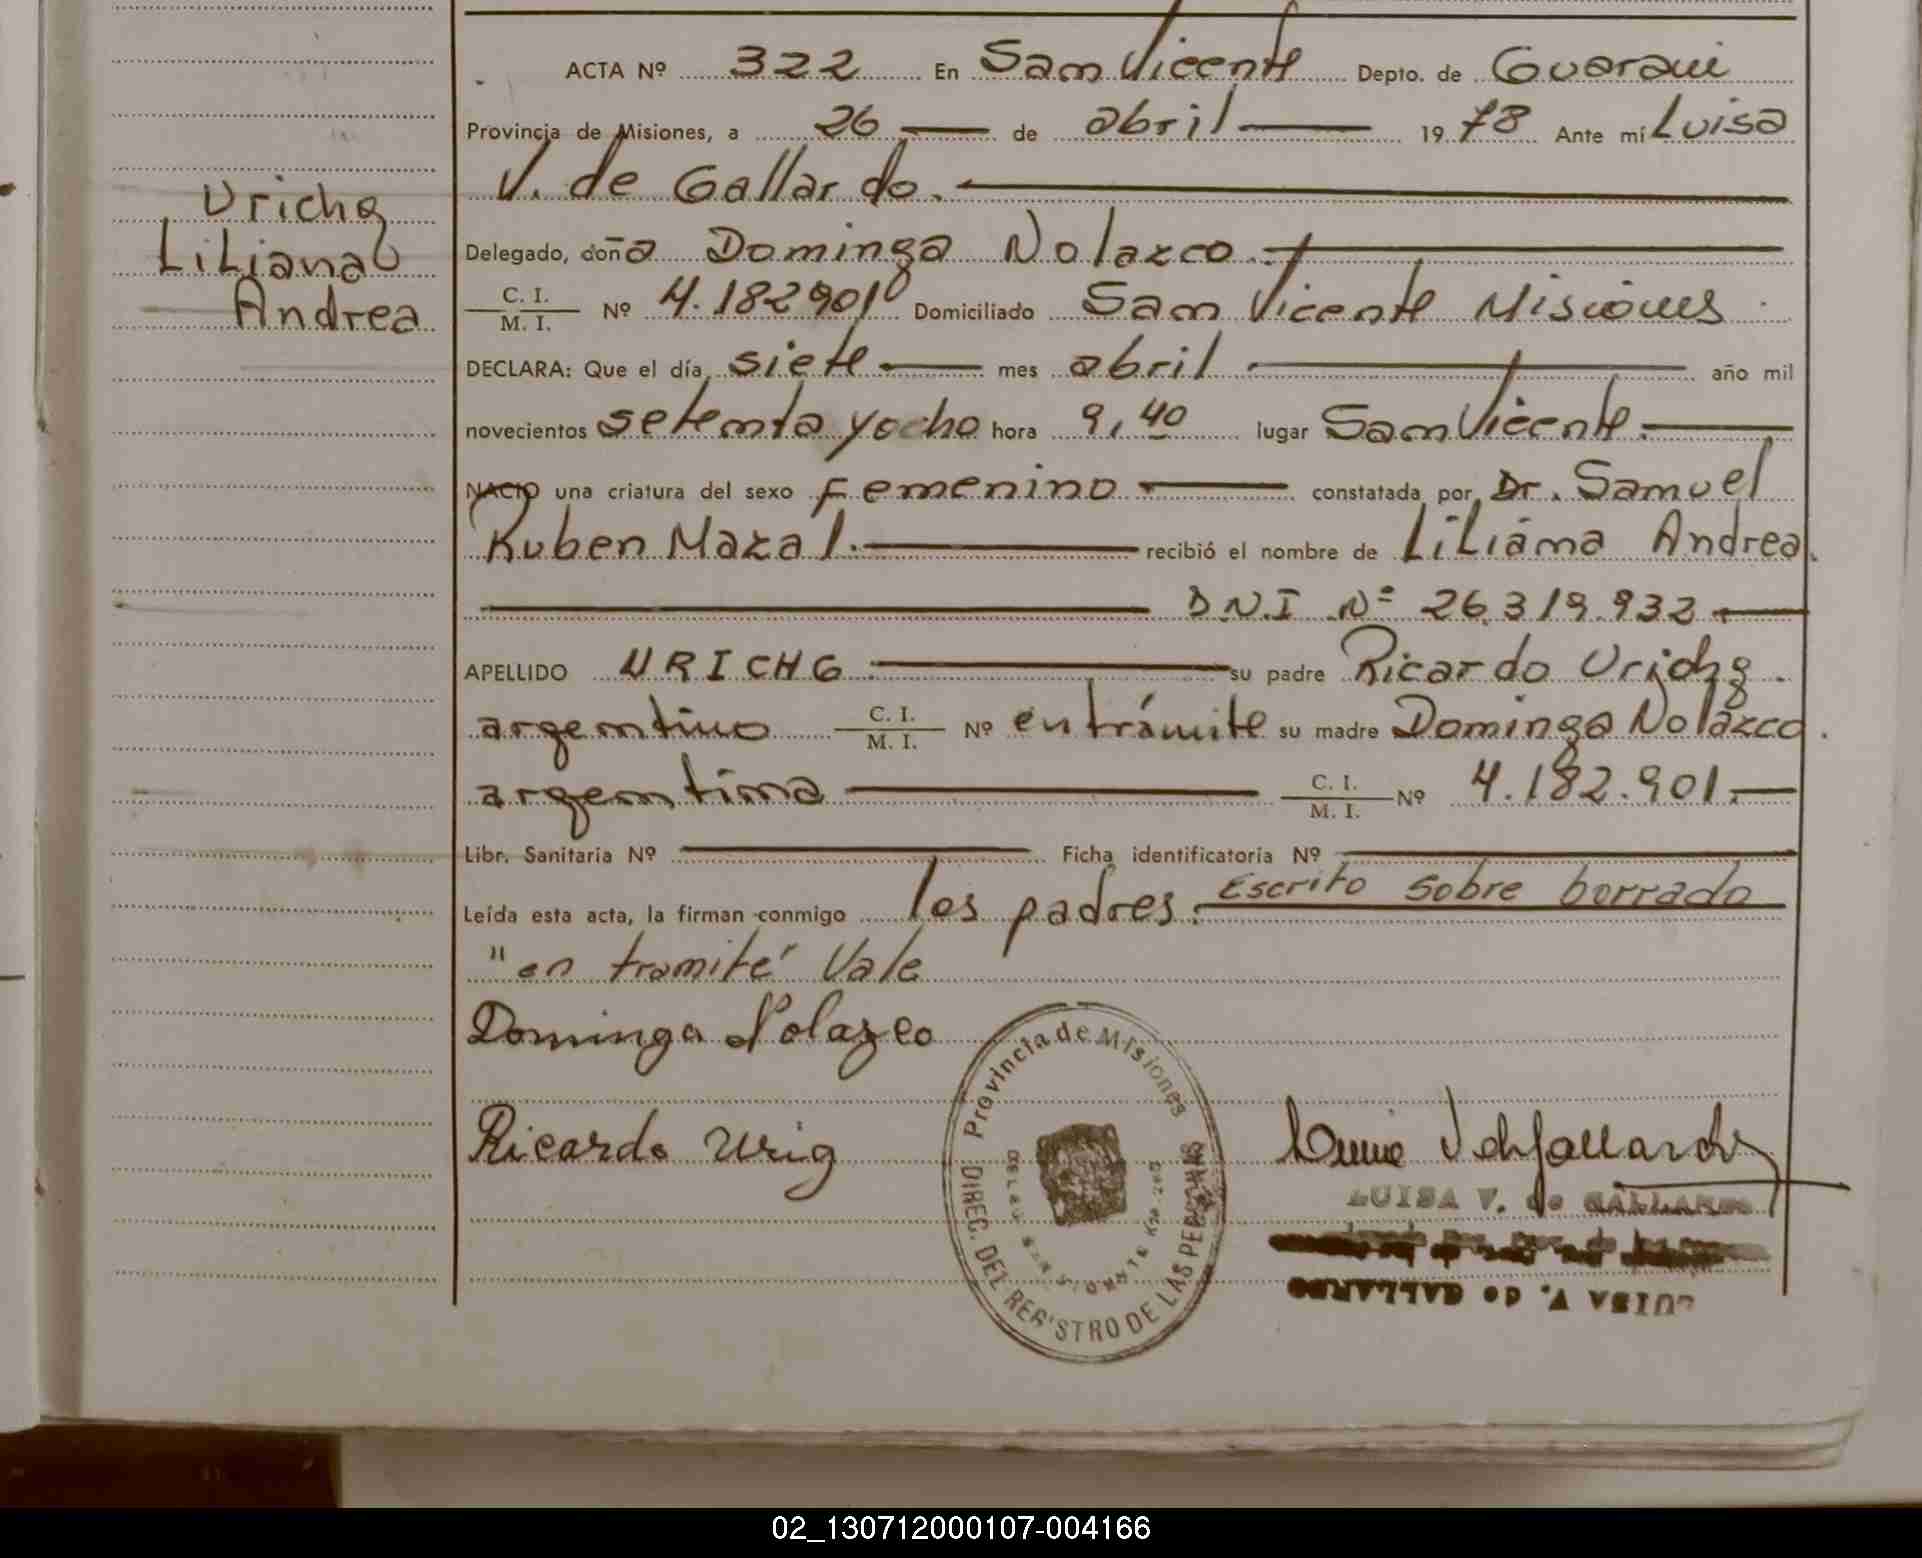 ACTA Nº 322 En San Vicente Depto. de Guarani
Provincia de Misiones, a 26 de abril 19 78 Ante mí Luisa
V. de Gallardo.
Urichg
Liliana
Andrea
Delegado, doña Dominga Nolazco.
C. I. / M. I. Nº 4.182901 Domiciliado San Vicente Misiones
DECLARA: Que el día siete mes abril año mil
novecientos setenta y ocho hora 9,40 lugar San Vicente.
NACIO una criatura del sexo Femenino constatada por Dr. Samuel
Ruben Mazal. recibió el nombre de Liliana Andrea.
D.N.I Nº 26.319.932
APELLIDO URICHG su padre Ricardo Urichg.
argentino C. I. / M. I. Nº en trámite su madre Dominga Nolazco.
argentina C. I. / M. I. Nº 4.182.901.
Libr. Sanitaria Nº Ficha identificatoria Nº
Leída esta acta, la firman conmigo los padres. Escrito sobre borrado
"en tramite" Vale
Dominga Nolazco
Ricardo Urig
Provincia de Misiones
DIREC. DEL REGISTRO DE LAS PERSONAS
LUISA V. de GALLARDO
LUISA V. de GALLARDO
02_130712000107-004166